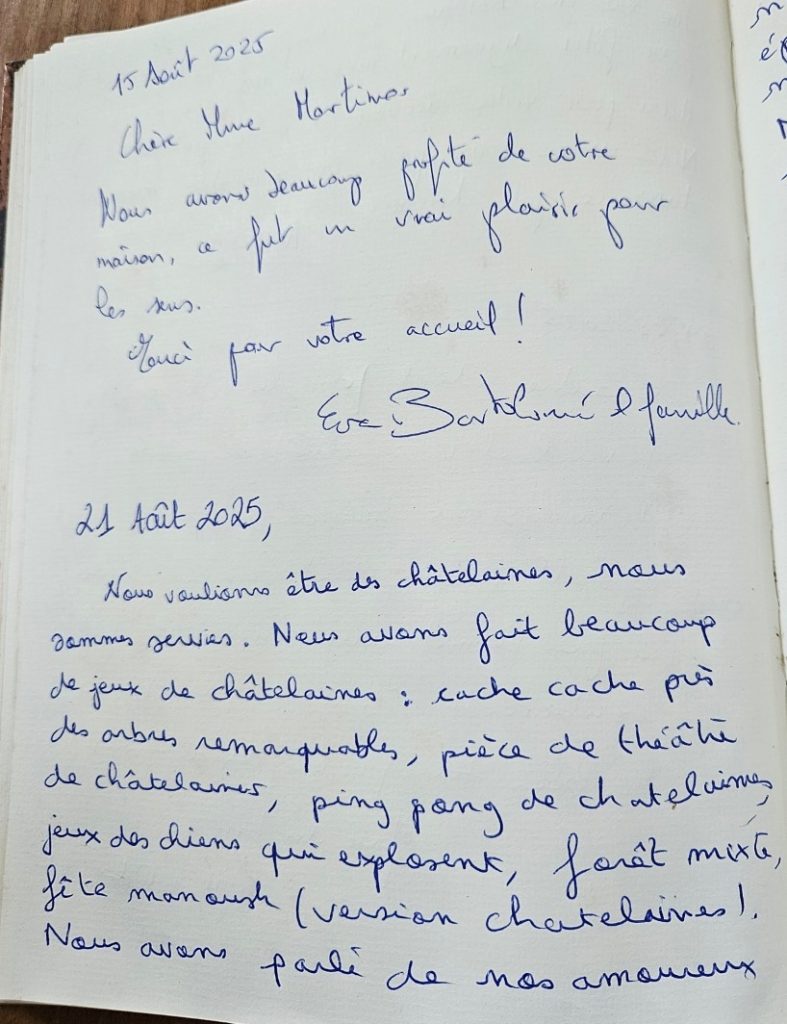 15 Août 2025
Chère Mme Martinos
Nous avons beaucoup profité de votre
maison, ce fut un vrai plaisir pour
les sens.
Merci pour votre accueil !
Eva Bartolomé & famille.
21 Août 2025,
Nous voulions être des châtelaines, nous
sommes servies. Nous avons fait beaucoup
de jeux de châtelaines : cache cache près
des arbres remarquables, pièce de théâtre
de châtelaines, ping pong de chatelaines,
jeux des chiens qui explosent, forêt mixte,
fête manoush (version chatelaines).
Nous avons parlé de nos amoureux